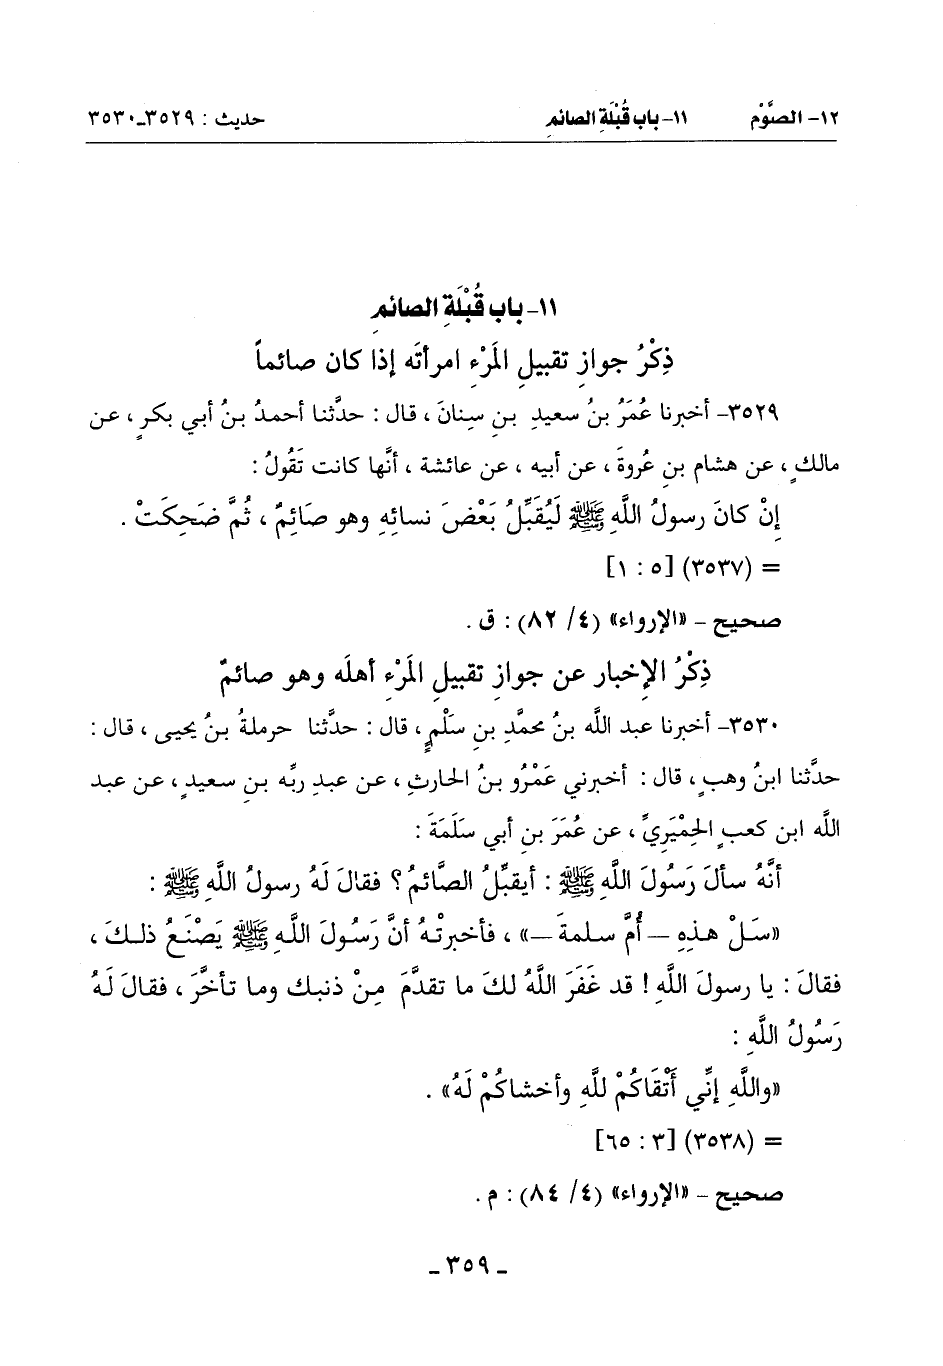 ١٢- الصَّوْم ١١- باب قُبْلَةِ الصائمِ حديث : ٣٥٢٩ـ٣٥٣٠
١١- باب قُبْلَةِ الصائمِ
ذِكْرُ جوازِ تقبيلِ المَرْءِ امرأتَه إذا كان صائماً
٣٥٢٩- أخبرنا عُمَرُ بنُ سعيدِ بنِ سِنانَ ، قال : حدَّثنا أحمدُ بنُ أبي بكرٍ ، عن
مالكٍ ، عن هشام بنِ عُروةَ ، عن أبيه ، عن عائشة ، أنَّها كانت تَقُولُ :
إِنْ كانَ رسولُ اللَّهِ ﷺ لَيُقَبِّلُ بَعْضَ نسائِهِ وهو صَائِمٌ ، ثُمَّ ضَحِكَتْ .
= (٣٥٣٧) [٥ : ١]
صحيح - «الإرواء» (٤/ ٨٢) : ق .
ذِكْرُ الإخبار عن جوازِ تقبيلِ المَرْءِ أهلَه وهو صائمٌ
٣٥٣٠- أخبرنا عبد اللَّه بنُ محمَّدِ بنِ سَلْمٍ ، قال : حدَّثنا حرملةُ بنُ يحيى ، قال :
حدَّثنا ابنُ وهبٍ ، قال : أخبرني عَمْرُو بنُ الحارثِ ، عن عبدِ ربِّه بنِ سعيدٍ ، عن عبد
اللَّه ابن كعبٍ الحِمْيَرِيِّ ، عن عُمَرَ بنِ أبي سَلَمَةَ :
أنَّهُ سألَ رَسُولَ اللَّهِ ﷺ : أيقبِّلُ الصَّائمُ؟ فقالَ لَهُ رسولُ اللَّهِ ﷺ :
«سَلْ هذِهِ — أُمَّ سلمةَ —» ، فأخبرتْهُ أنَّ رَسُولَ اللَّهِ ﷺ يَصْنَعُ ذلكَ ،
فقالَ : يا رسولَ اللَّهِ ! قد غَفَرَ اللَّهُ لكَ ما تقدَّمَ مِنْ ذنبك وما تأخَّرَ ، فقالَ لَهُ
رَسُولُ اللَّهِ :
«واللَّهِ إنِّي أَتْقَاكُمْ للَّهِ وأخشاكُمْ لَهُ» .
= (٣٥٣٨) [٣ : ٦٥]
صحيح - «الإرواء» (٤/ ٨٤) : م .
ـ ٣٥٩ ـ